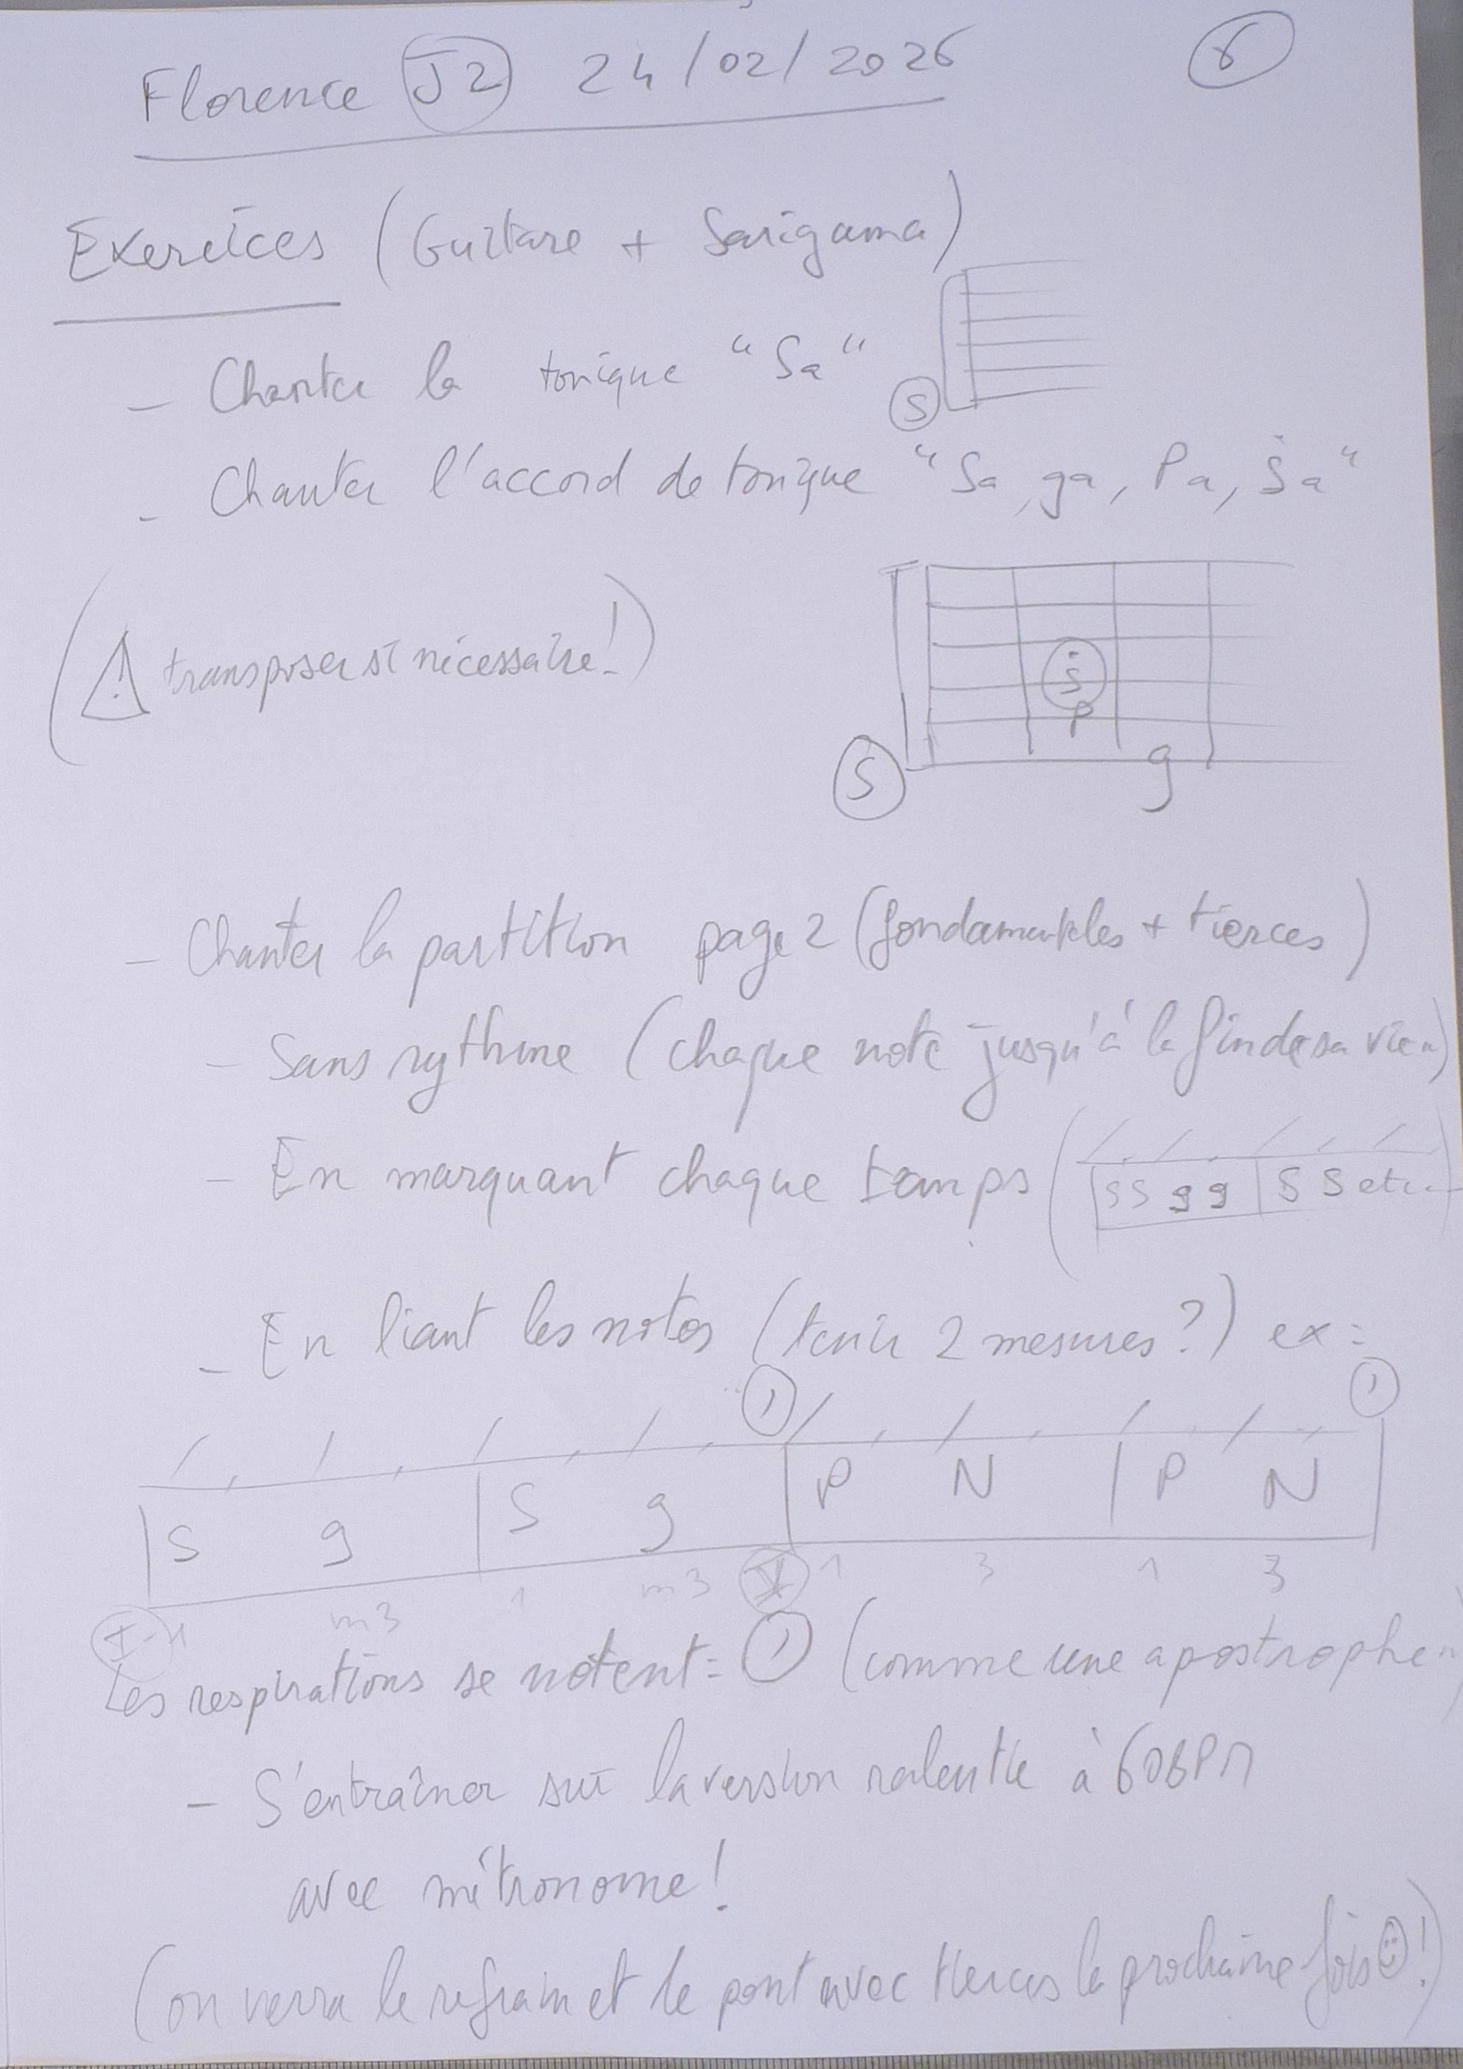 Florence J2 24/02/2026 6
Exercices (Guitare + Sarigama)
- Chanter la tonique "Sa"
S
- Chanter l'accord de tonique "Sa, ga, Pa, Ṡa"
(⚠ transposer si nécessaire!)
Ṡ
P
S g
- Chanter la partition page 2 (fondamentales + tierces)
- Sans rythme (chaque note jusqu'à la fin de sa vie)
- En marquant chaque temps (SS gg | S S etc...
- En liant les notes (tenir 2 mesures?) ex:
| S g | S g | P N | P N |
I-1 m3 1 m3 V 1 3 1 3
Les respirations se notent: ' (comme une apostrophe)
- S'entraîner sur la version ralentie à 60BPM
avec métronome!
(on verra le refrain et le pont avec tierces la prochaine fois ☺!)